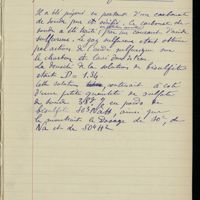 Il a été préparé en partant d'un carbonate
de soude pur et vérifié. Le carbonate de
soude a été traité par un courant d'acide
sulfureux. Le gaz sulfureux étant obtenu
par action de l'acide sulfurique sur
le charbon et lavé dans de l'eau
La densité de la solution de bisulfite
était D = 1.34
Cette solution contenait à côté
d'une petite quantité de sulfate
de soude 38 % en poids de
bisulfite SO³NaH, ainsi que
le montrait le dosage du de
Na et de SO⁴H²